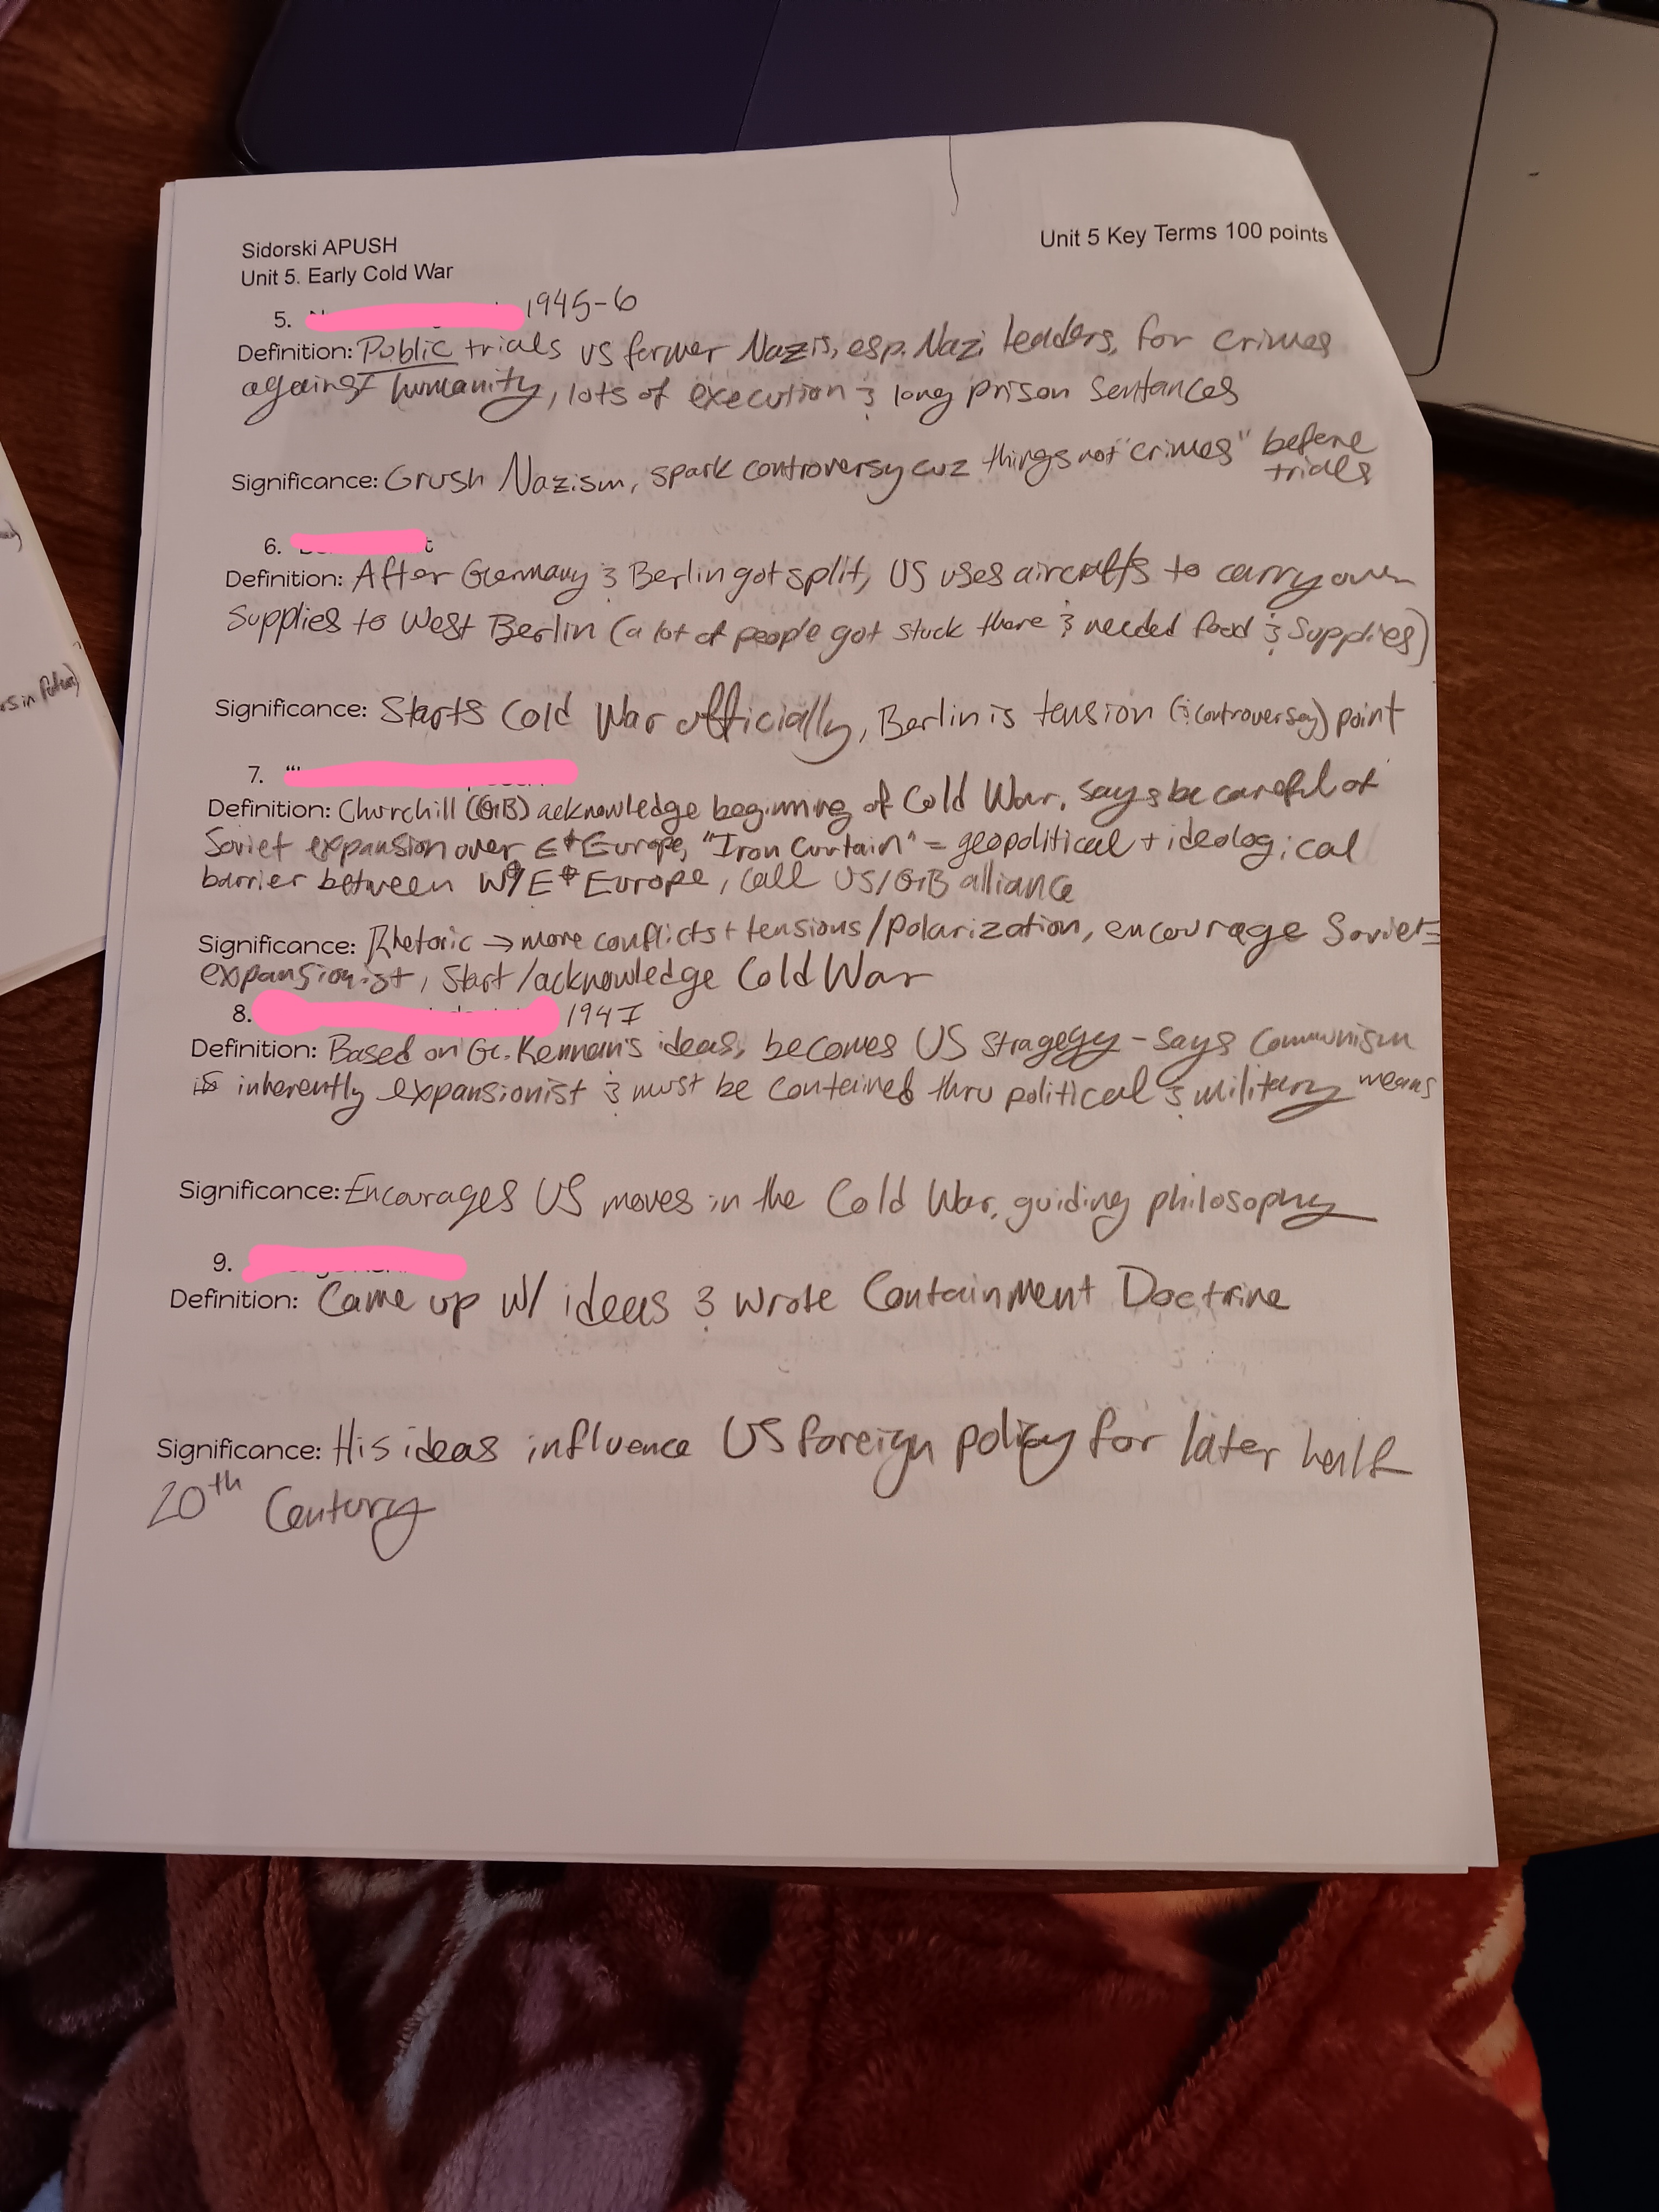 Sidorski APUSH
Unit 5 Key Terms 100 points
Unit 5. Early Cold War
5. 1945-6
Definition: Public trials vs former Nazis, esp. Nazi leaders, for crimes
against humanity, lots of execution & long prison sentances
Significance: Crush Nazism, spark controversy cuz things not "crimes" before
trials
6.
Definition: After Germany & Berlin got split, US uses aircrafts to carry over
supplies to West Berlin (a lot of people got stuck there & needed food & supplies)
Significance: Starts Cold War officially, Berlin is tension (& controversay) point
7.
Definition: Churchill (GB) acknowledge beginning of Cold War, says be careful of
Soviet expansion over E Europe, "Iron Curtain" = geopolitical + ideological
barrier between W/E Europe, call US/GB alliance
Significance: Rhetoric → more conflicts + tensions/polarization, encourage Soviet=
expansionist, start/acknowledge Cold War
8. 1947
Definition: Based on G. Kennan's ideas, becomes US stragegy - says Communism
is inherently expansionist & must be contained thru political & military means
Significance: Encourages US moves in the Cold War, guiding philosophy
9.
Definition: Came up w/ ideas & wrote Containment Doctrine
Significance: His ideas influence US foreign policy for later half
20th Century